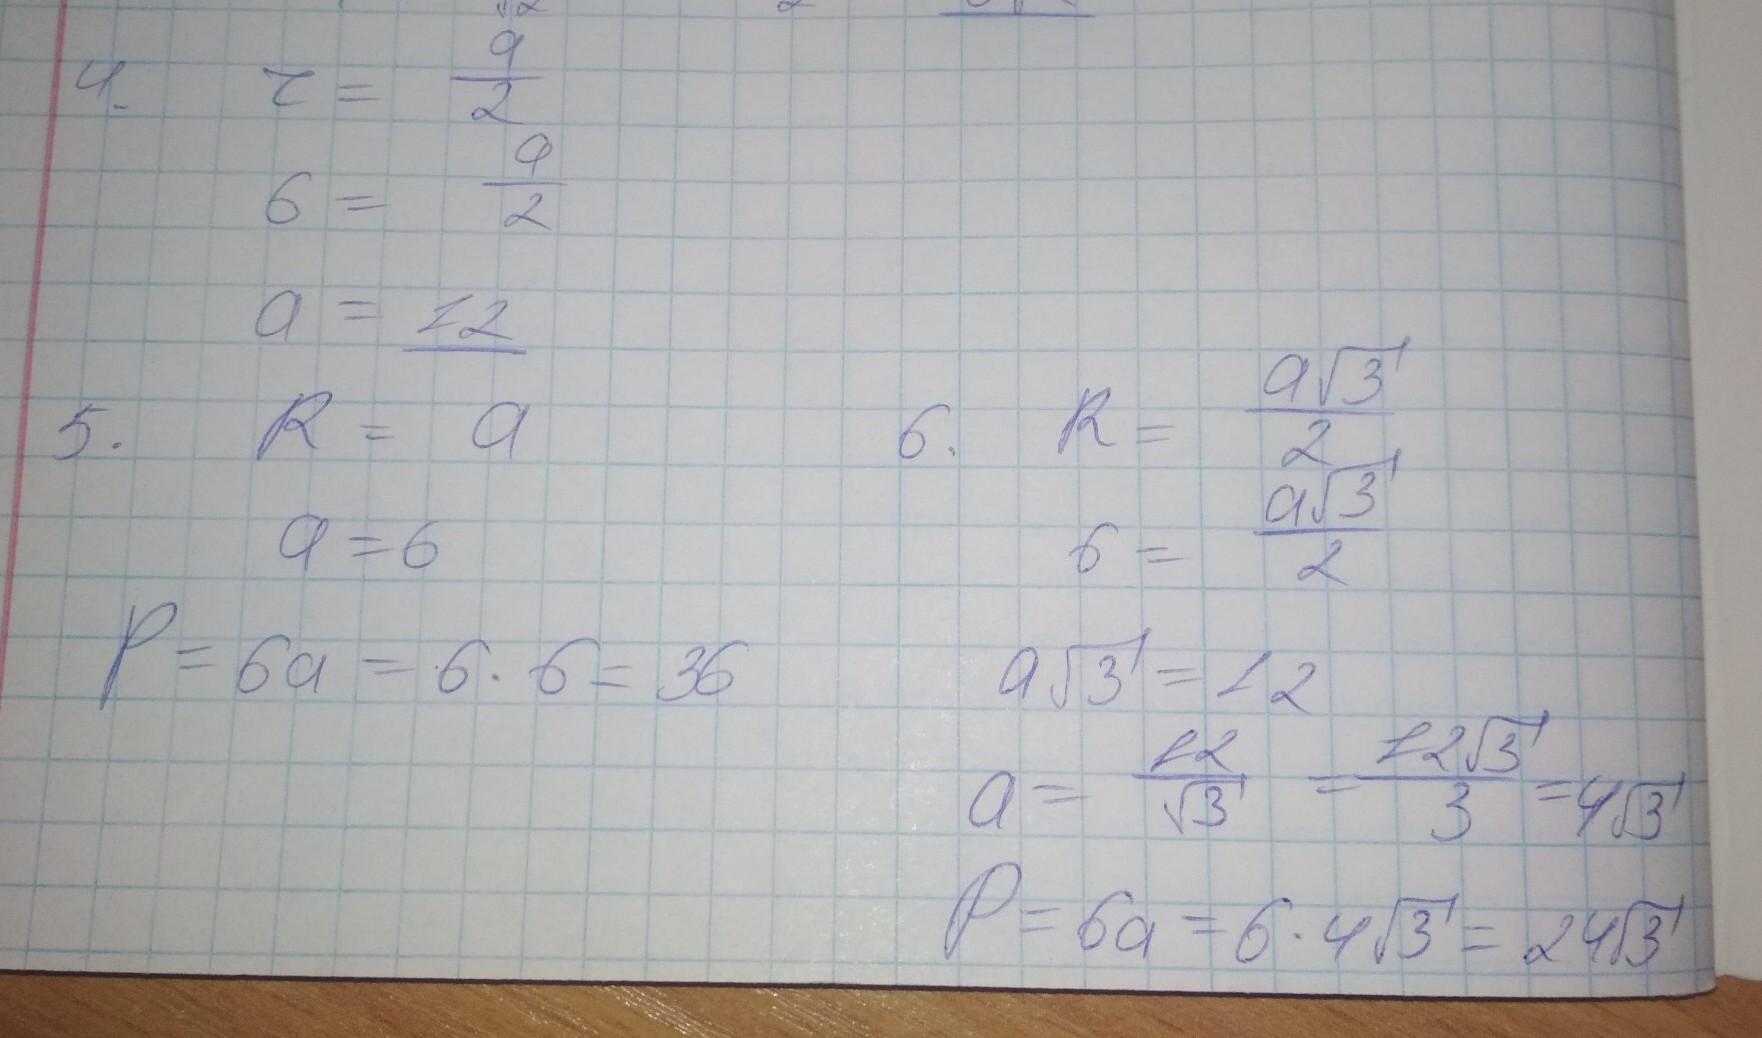 4. r = a/2
6 = a/2
a = 12
5. R = a
a = 6
P = 6a = 6 · 6 = 36
6. R = a√3/2
6 = a√3/2
a√3 = 12
a = 12/√3 = 12√3/3 = 4√3
P = 6a = 6 · 4√3 = 24√3